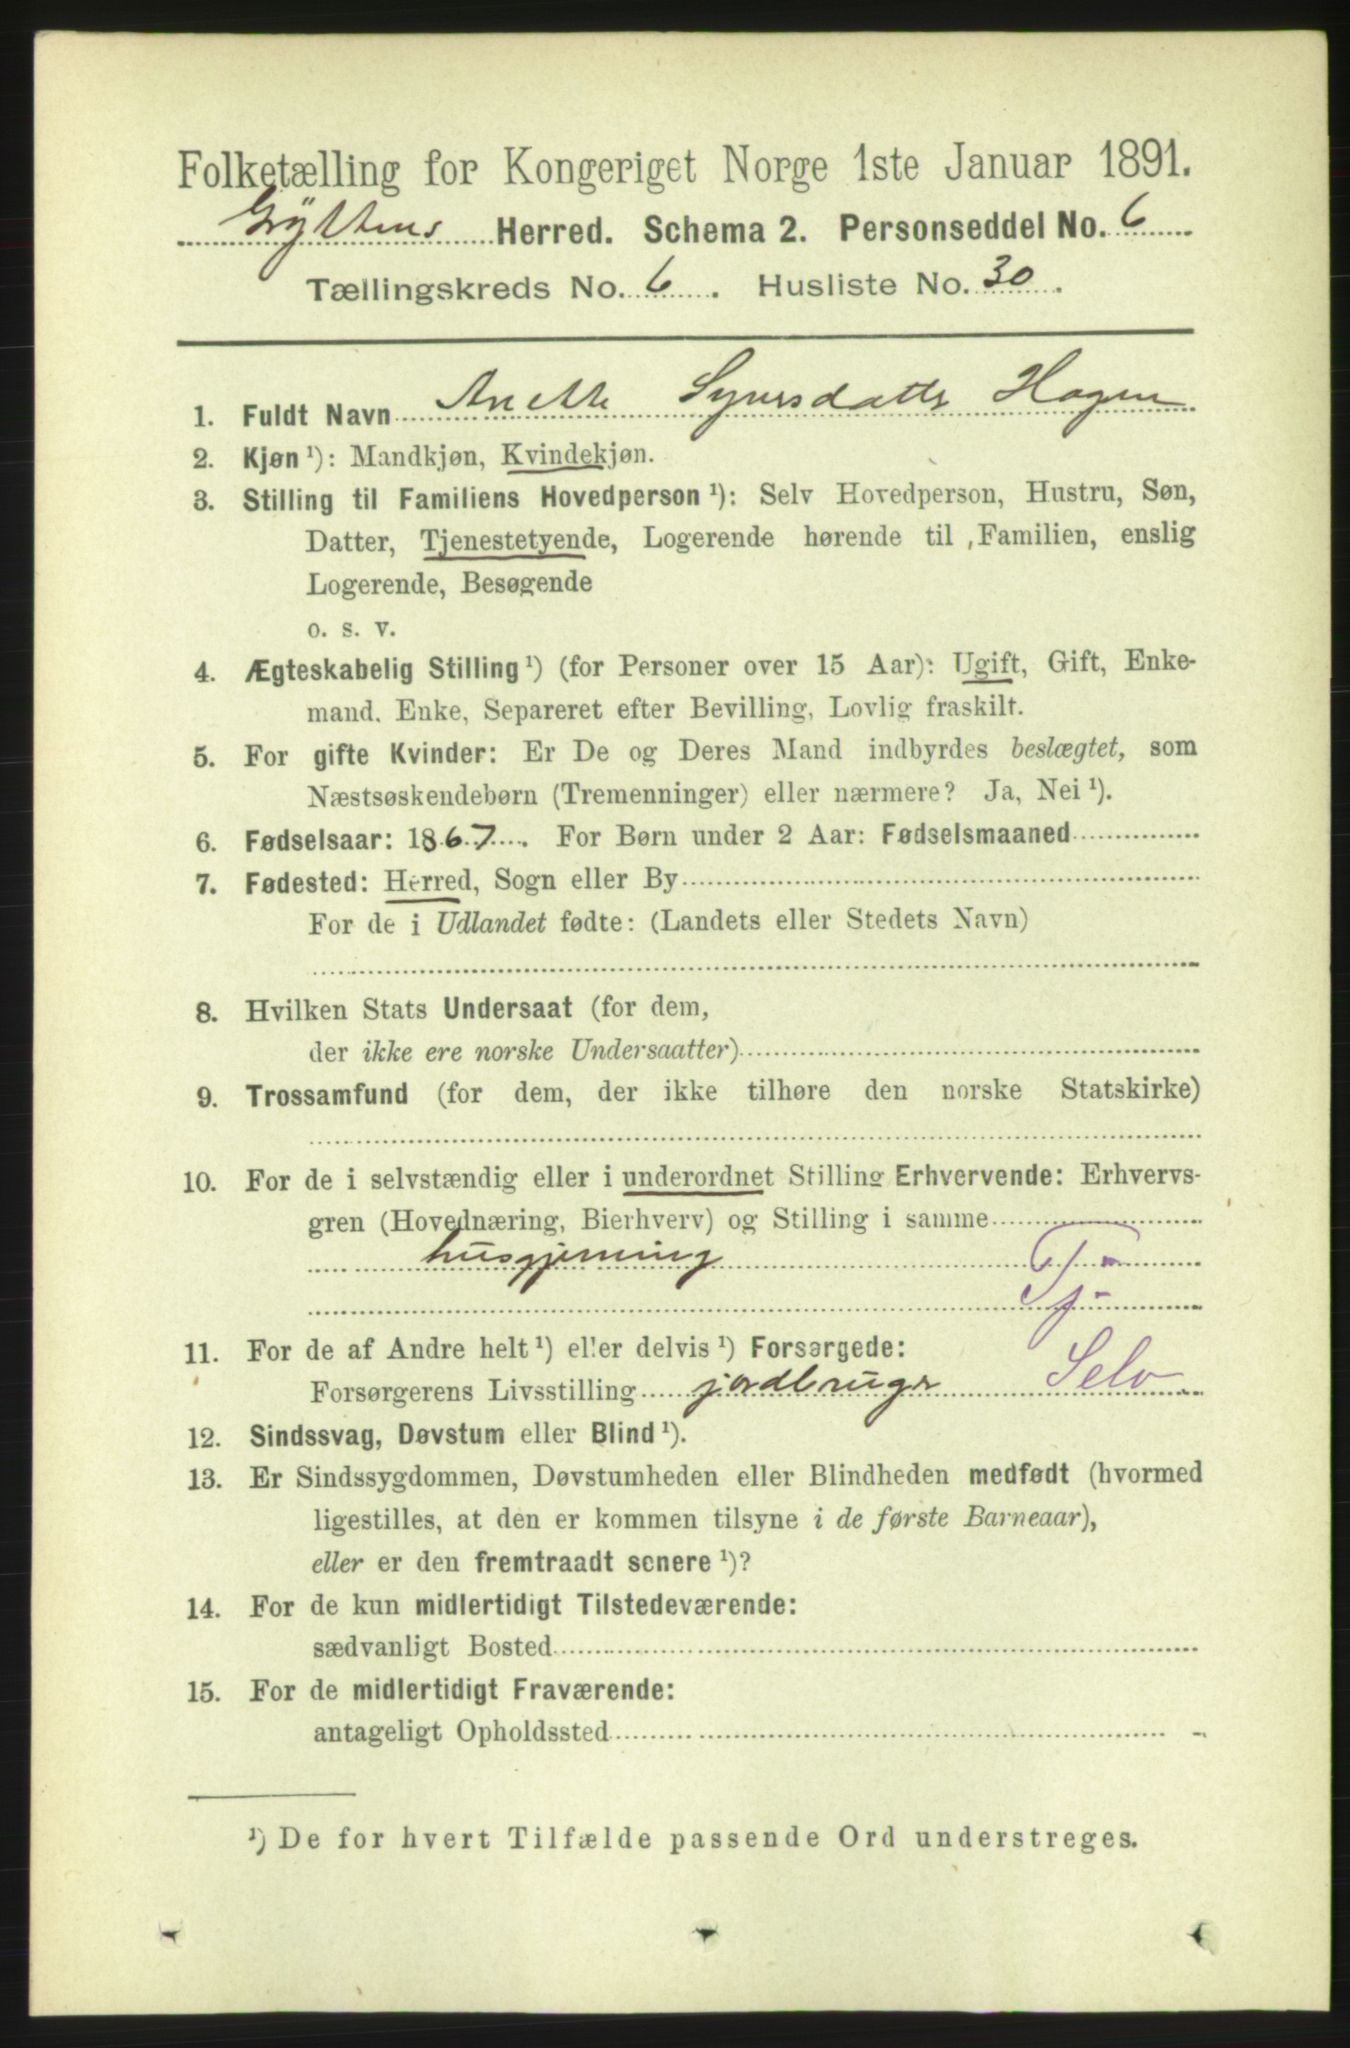 Folketælling for Kongeriget Norge 1ste Januar 1891.
Gryttens Herred. Schema 2. Personseddel No. 6
Tællingskreds No. 6. Husliste No. 30.
1. Fuldt Navn Anette Syversdatter Hagen
2. Kjøn ¹): Mandkjøn, Kvindekjøn.
3. Stilling til Familiens Hovedperson ¹): Selv Hovedperson, Hustru, Søn,
Datter, Tjenestetyende, Logerende hørende til Familien, enslig
Logerende, Besøgende
o. s. v.
4. Ægteskabelig Stilling ¹) (for Personer over 15 Aar): Ugift, Gift, Enke-
mand, Enke, Separeret efter Bevilling, Lovlig fraskilt.
5. For gifte Kvinder: Er De og Deres Mand indbyrdes beslægtet, som
Næstsøskendebørn (Tremenninger) eller nærmere? Ja, Nei ¹).
6. Fødselsaar: 1867. For Børn under 2 Aar: Fødselsmaaned
7. Fødested: Herred, Sogn eller By
For de i Udlandet fødte: (Landets eller Stedets Navn)
8. Hvilken Stats Undersaat (for dem,
der ikke ere norske Undersaatter)
9. Trossamfund (for dem, der ikke tilhøre den norske Statskirke)
10. For de i selvstændig eller i underordnet Stilling Erhvervende: Erhvervs-
gren (Hovednæring, Bierhverv) og Stilling i samme
husgjerning Tj-
11. For de af Andre helt ¹) eller delvis ¹) Forsørgede:
Forsørgerens Livsstilling jordbruger Selv
12. Sindssvag, Døvstum eller Blind ¹).
13. Er Sindssygdommen, Døvstumheden eller Blindheden medfødt (hvormed
ligestilles, at den er kommen tilsyne i de første Barneaar),
eller er den fremtraadt senere ¹)?
14. For de kun midlertidigt Tilstedeværende:
sædvanligt Bosted
15. For de midlertidigt Fraværende:
antageligt Opholdssted
¹) De for hvert Tilfælde passende Ord understreges.